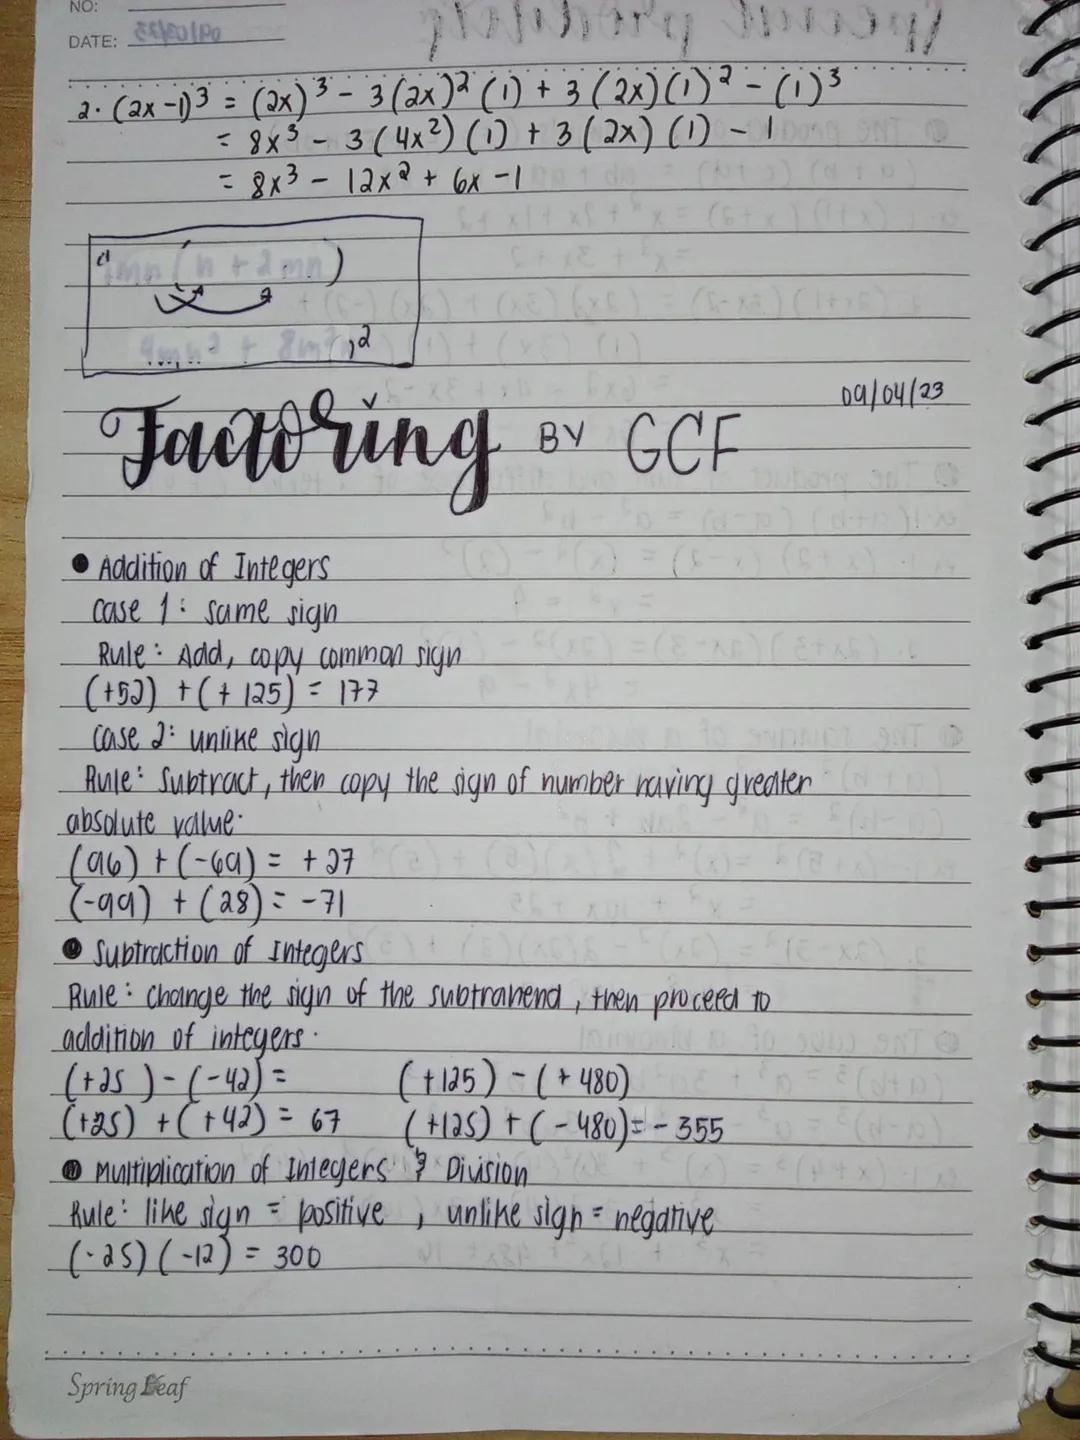 NO:
DATE: 09/03/23
2. (2x-1)³ = (2x)³ - 3(2x)² (1) + 3(2x)(1)² - (1)³
= 8x³ - 3(4x²)(1) + 3(2x)(1) - 1
= 8x³ - 12x² + 6x -1
4mn(n + 2mn)
Factoring BY GCF
09/04/23
● Addition of Integers
case 1: same sign
Rule: Add, copy common sign
(+52) + (+125) = 177
case 2: unlike sign
Rule: Subtract, then copy the sign of number having greater
absolute value.
(96) + (-69) = +27
(-99) + (28) = -71
● Subtraction of Integers
Rule: change the sign of the subtrahend, then proceed to
addition of integers.
(+25) - (-42) =
(+25) + (+42) = 67
(+125) - (+480)
(+125) + (-480) = -355
● Multiplication of Integers & Division
Rule: like sign = positive, unlike sign = negative
(-25)(-12) = 300
Spring Leaf